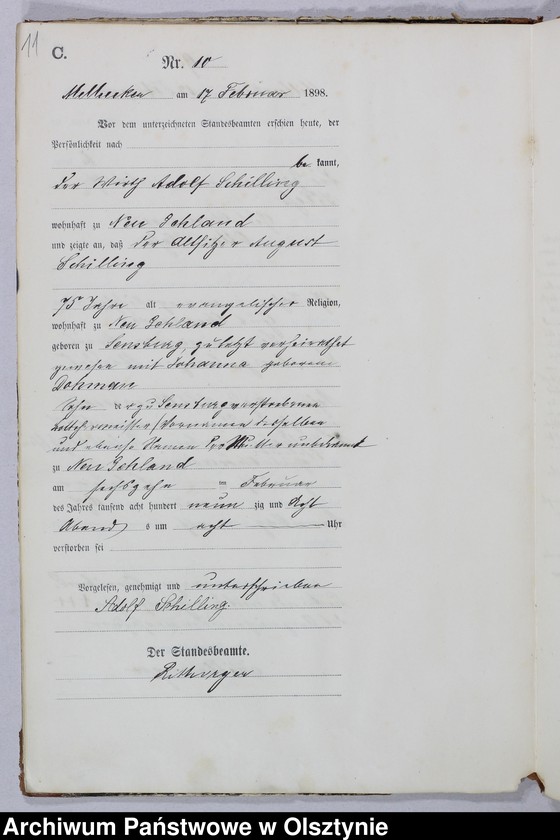 11
C.
Nr. 10
am 17 Februar 1898.
Vor dem unterzeichneten Standesbeamten erschien heute, der
Persönlichkeit nach
be kannt,
der Wirth Adolf Schilling
wohnhaft zu Neu Gehland
und zeigte an, daß der Altsitzer August
Schilling
75 Jahre alt evangelischer Religion,
wohnhaft zu Neu Gehland
geboren zu Sensburg, zuletzt verheirathet
gewesen mit Johanna geborene
Dohman
Sohn der zu Sensburg verstorbenen
Vornamen desselben
und ebenso Namen der Mutter unbekannt
zu Neu Gehland
am sechszehn ten Februar
des Jahres tausend acht hundert neun zig und acht
Abend s um acht Uhr
verstorben sei
Vorgelesen, genehmigt und unterschrieben
Adolf Schilling.
Der Standesbeamte.
Archiwum Państwowe w Olsztynie